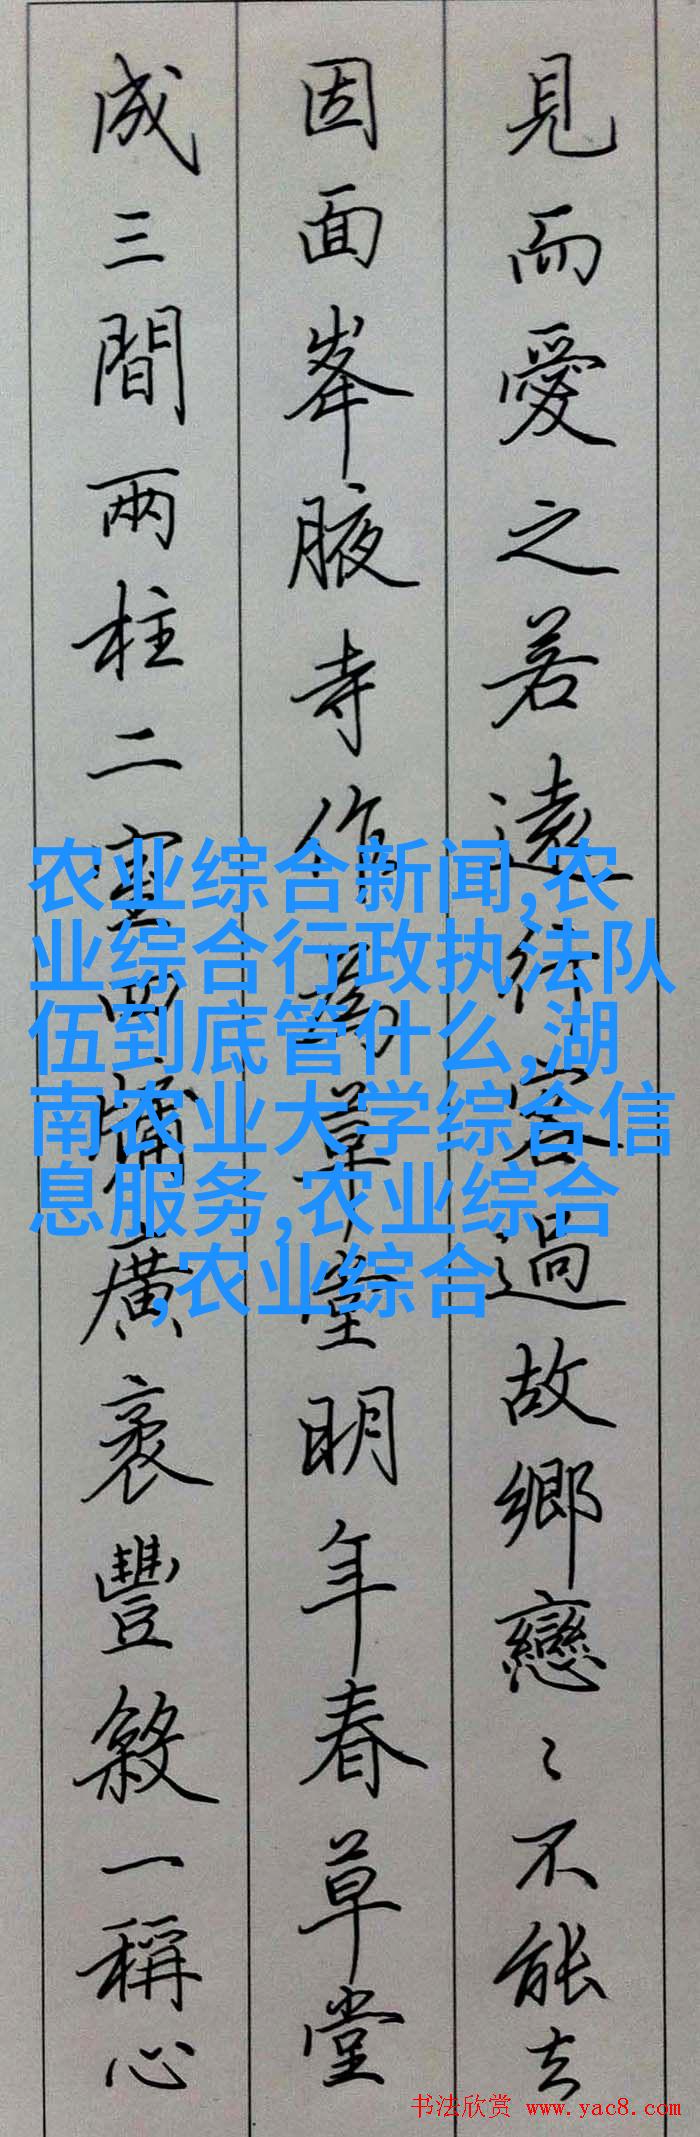 見而愛之若遠行客過故鄉戀〻不能去
因面峯腋寺作為草堂明年春草堂
成三間兩柱二室四牖廣袤豐殺一稱心
农业综合新闻,农
业综合行政执法队
伍到底管什么,湖
南农业大学综合信
息服务,农业综合
,农业综合
书法欣赏 www.yac8.com